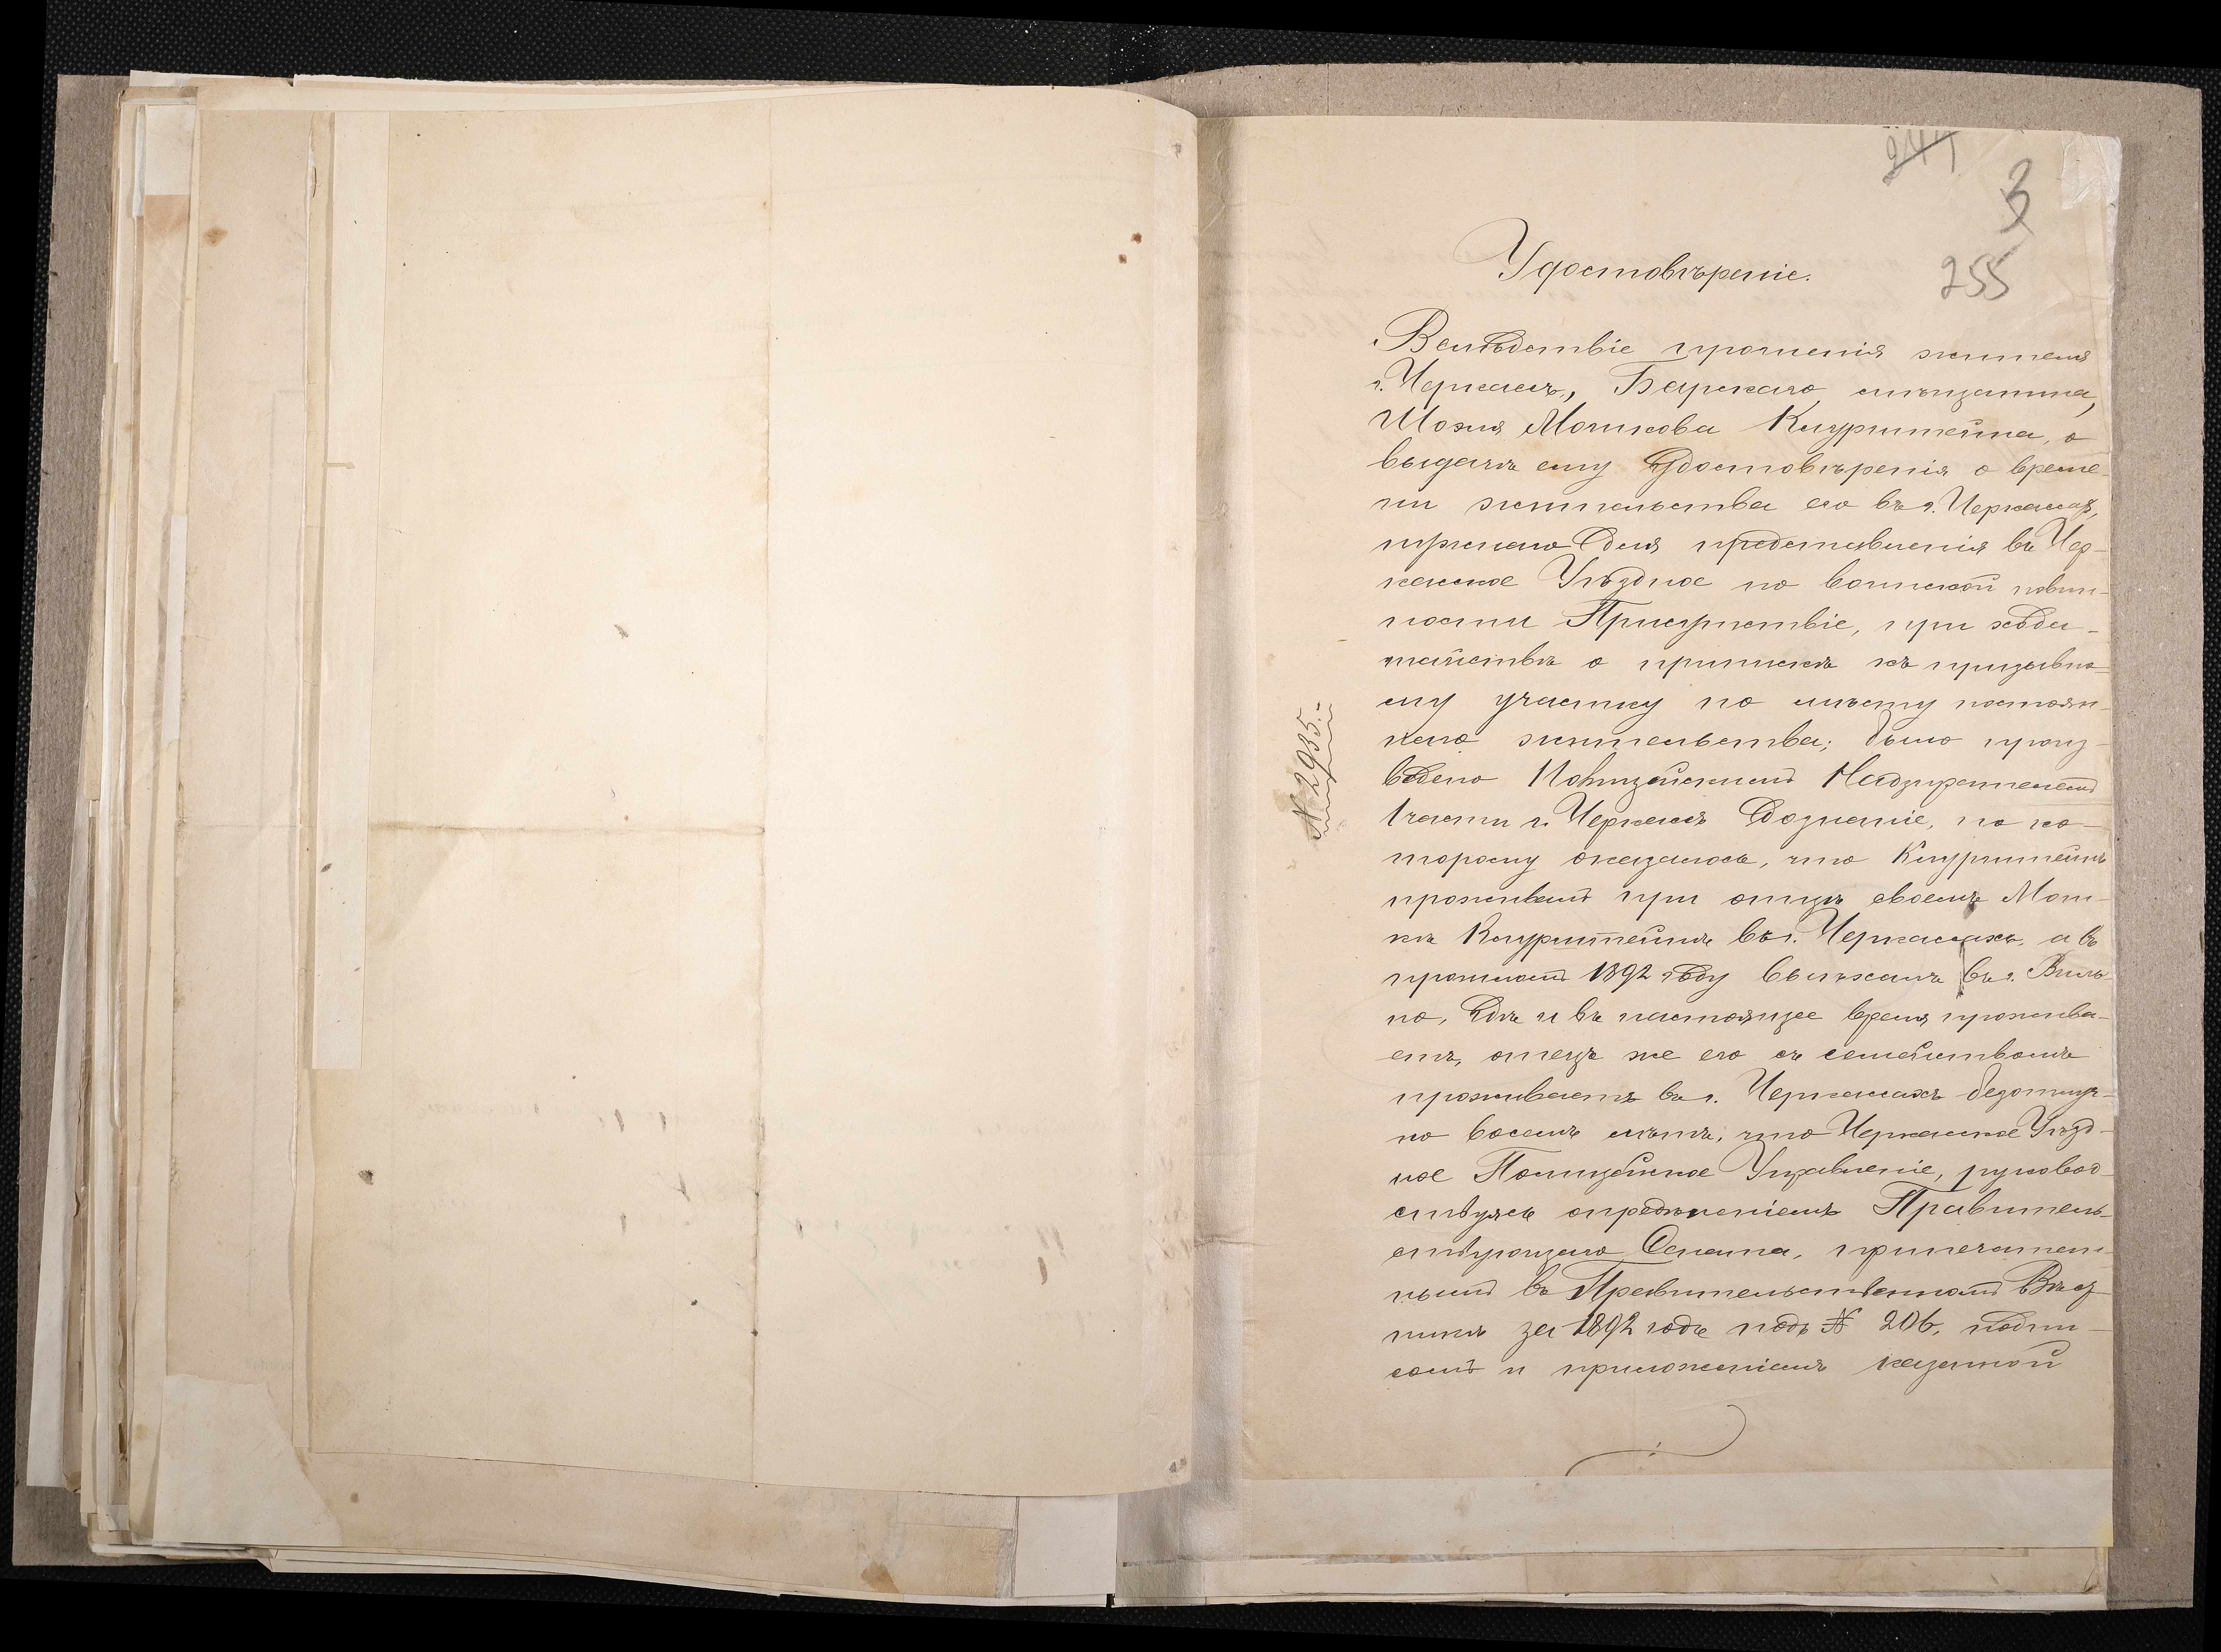 241
3
255
Удостовѣреніе.
Вслѣдствіе прошенія жителя
г. Черкасъ, Барскаго мѣщанина,
Шоэля Мошкова Клурштейна, о
выдачѣ ему Удостовѣренія о време-
ни жительства его въ г. Черкасахъ,
нужнаго для представленія въ Чер-
касское Уѣздное по воинской повин-
ности Присутствіе, при хода-
тайствѣ о припискѣ къ призывно-
му участку по мѣсту постоян-
наго жительства; было произ-
ведено Полицейскимъ Надзирателемъ
1 части г. Черкасъ дознаніе, по ко-
торому оказалось, что Клурштейнъ
проживалъ при отцѣ своемъ Мош-
кѣ Клурштейнѣ въ г. Черкасахъ, а въ
прошломъ 1892 году выѣхалъ въ г. Виль-
но, гдѣ и въ настоящее время прожива-
етъ, отецъ же его съ семействомъ
проживаетъ въ г. Черкасахъ безотлуч-
но восемь лѣтъ, что Черкасское Уѣзд-
ное Полицейское Управленіе, руковод-
ствуясь опредѣленіемъ Правитель-
ствующаго Сената, припечатан-
нымъ въ Правительственномъ Вѣст-
никѣ за 1892 годъ подъ № 206, подпи-
сомъ и приложеніемъ казенной
№ 2935.-